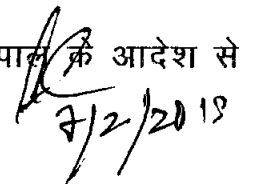 के आदेश से
7/2/2019